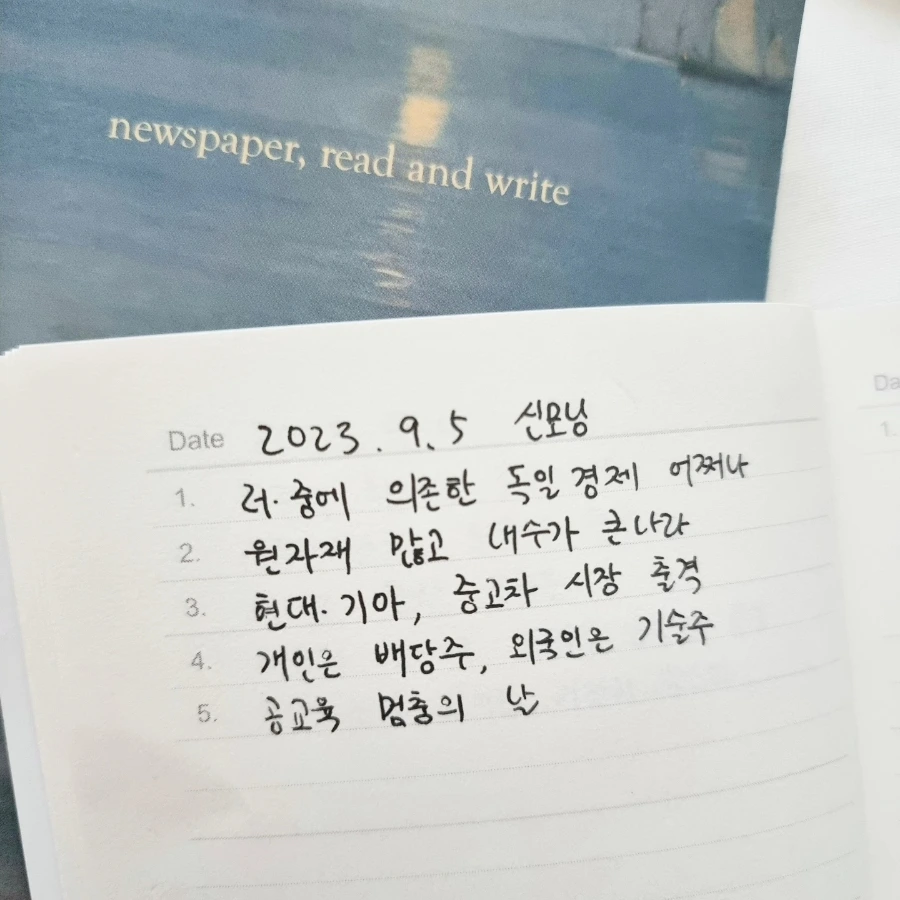 newspaper, read and write
Date 2023.9.5 신모닝
1. 러·중에 의존한 독일경제 어쩌나
2. 원자재 많고 내수가 큰나라
3. 현대·기아, 중고차 시장 출격
4. 개인은 배당주, 외국인은 기술주
5. 공교육 멈춤의 날
Da
1.